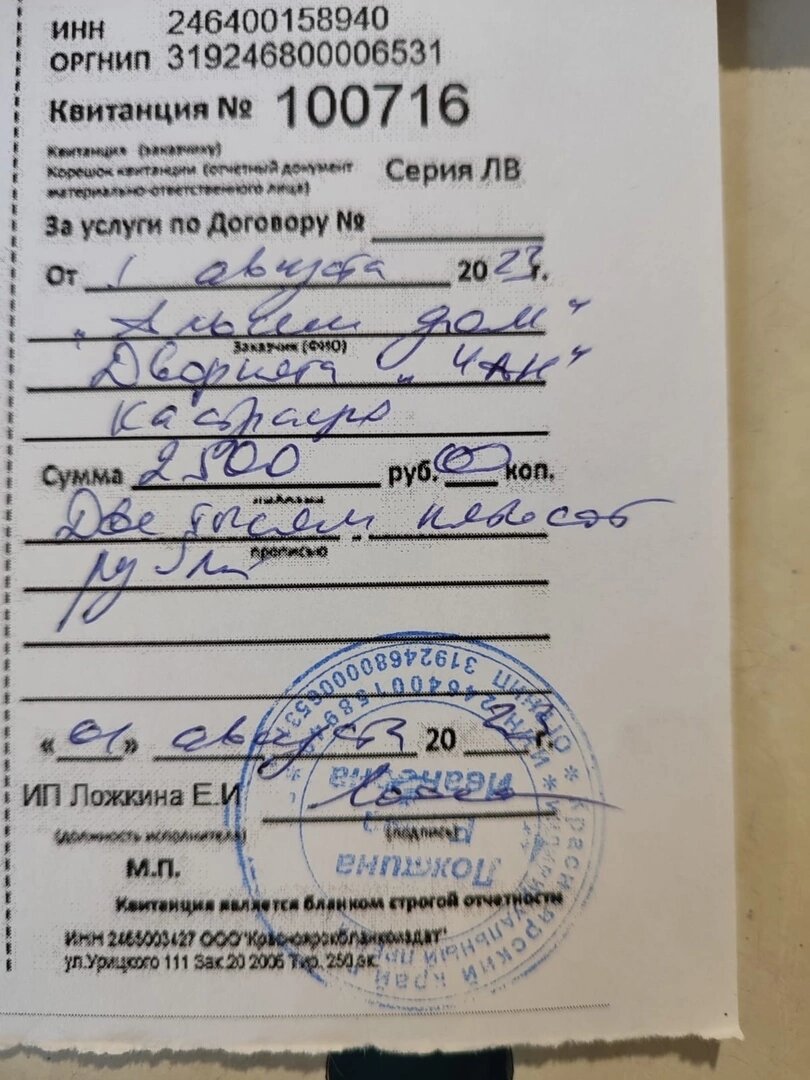 ИНН 246400158940
ОРГНИП 319246800006531
Квитанция № 100716
Квитанция (заказчику)
Корешок квитанции (отчетный документ
материально-ответственного лица)
Серия ЛВ
За услуги по Договору №
От 1 августа 2023г.
дом"
Заказчик (ФИО)
Дворняга "Чак"
кастрация
Сумма 2500 руб. 00 коп.
Две тысячи пятьсот
прописью
рублей
«01» августа 2023г.
ИП Ложкина Е.И
(должность исполнителя)
(подпись)
М.П.
Квитанция является бланком строгой отчетности
ИНН 2465003427 ООО"Красноярскбланкиздат"
ул.Урицкого 111 Зак.20 2006 Тир. 250 эк.
Красноярский край
ОГРНИП 319246800006531
ИНН 246400158940
Ивановна